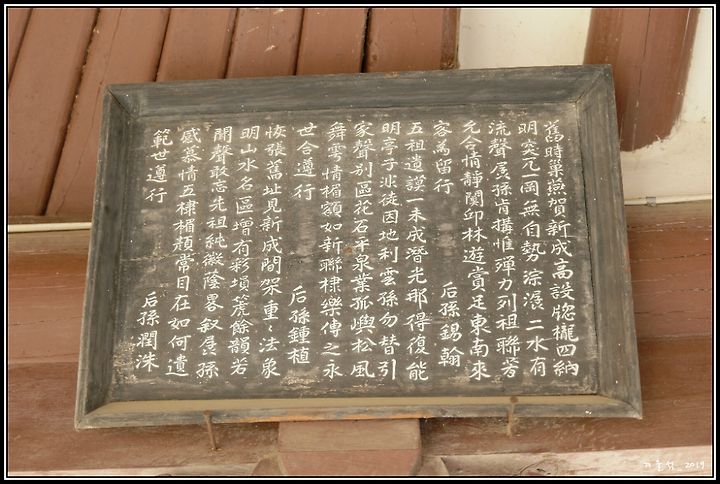 舊時巢燕賀新成高設牕櫳四納
明突兀一岡無自勢淙潺二水有
流聲孱孫肯搆惟殫力列祖聯芳
允合情靜閴邱林遊賞足東南來
客爲留行 后孫錫翰
五祖遺謨一未成潛光那得復能
明亭子涉徒因地利雲孫勿替引
家聲別區花石平泉業孤嶼松風
舞雩情楣額如新聯棣樂傳之永
世合遵行 后孫鍾植
恢張舊址見新成間架重〻法象
明山水石區增有彩塤篪餘韻若
聞聲敢忘先祖純徽蔭畧叙孱孫
感慕情五棣楣顏常目在如何遺
範世遵行 后孫潤洙
2019